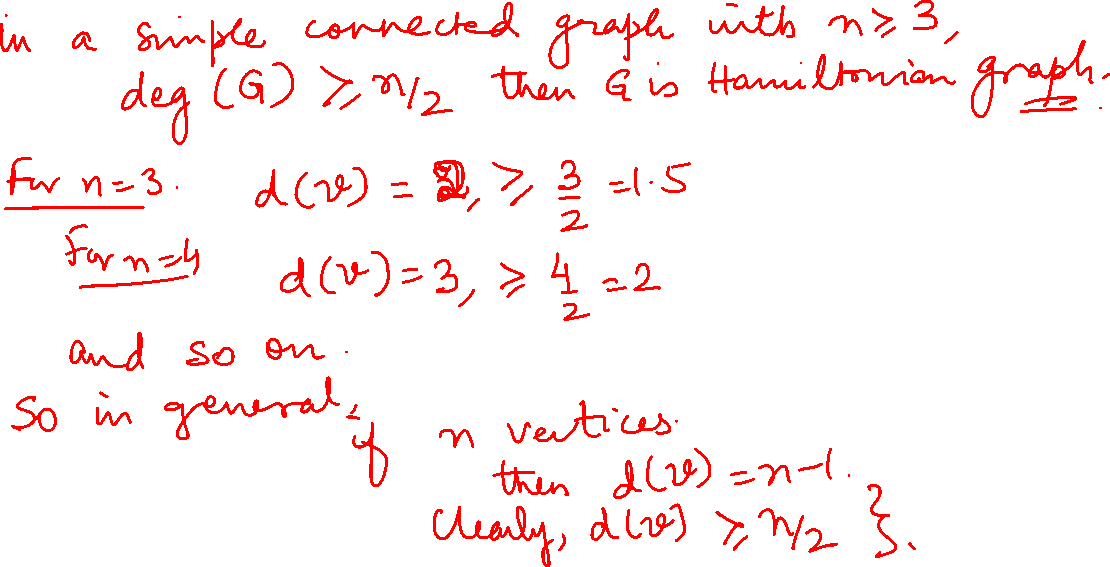 in a simple connected graph with n ≥ 3,
deg (G) ≥ n/2 then G is Hamiltonian graph.
For n=3. d(v) = 2, ≥ 3/2 = 1.5
For n=4 d(v) = 3, ≥ 4/2 = 2
and so on.
So in general, if n vertices.
then d(v) = n-1.
Clearly, d(v) ≥ n/2 }.